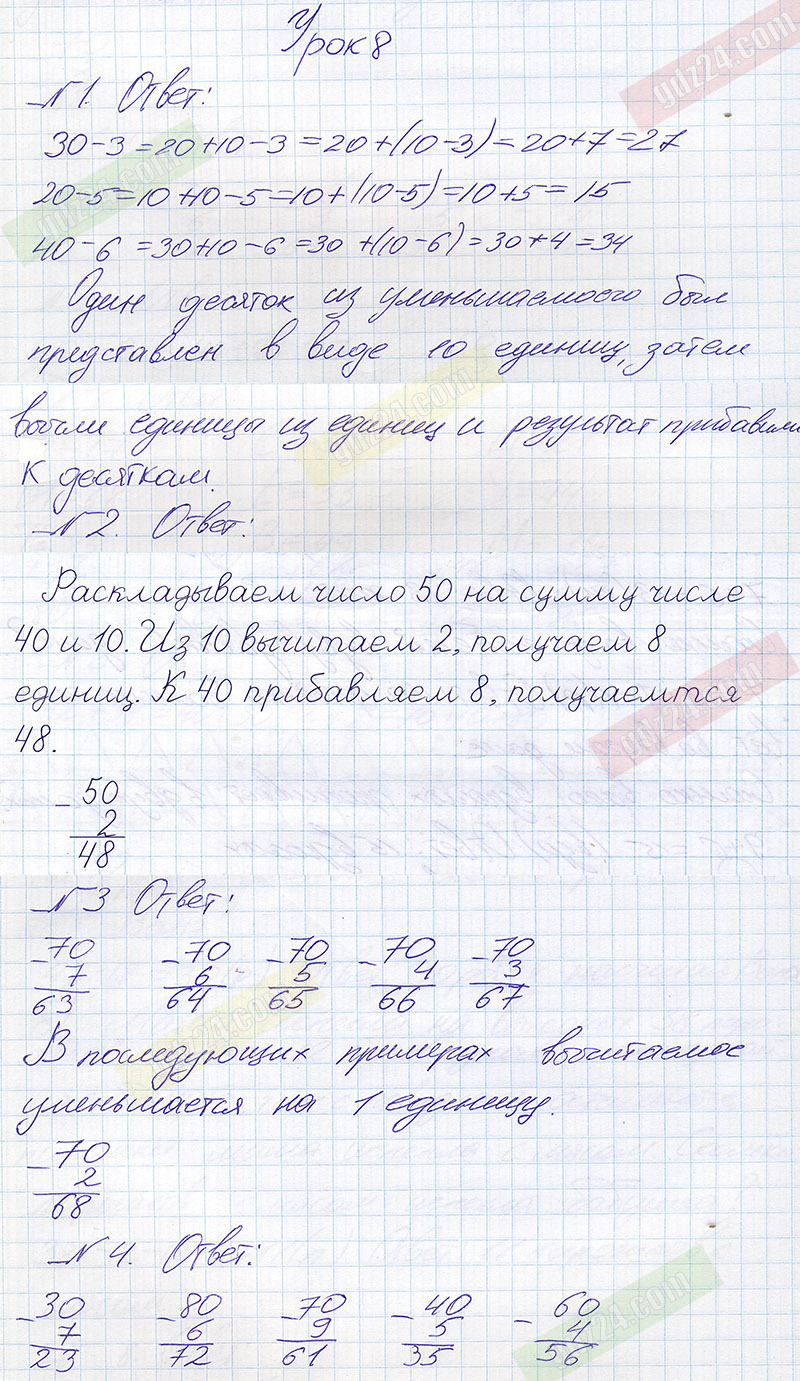 Урок 8
№1. Ответ:
30-3=20+10-3=20+(10-3)=20+7=27
20-5=10+10-5=10+(10-5)=10+5=15
40-6=30+10-6=30+(10-6)=30+4=34
Один десяток из уменьшаемоего был
представлен в виде 10 единиц, затем
вычли единицы из единиц и результат прибавили
к десяткам.
№2. Ответ:
Раскладываем число 50 на сумму числе
40 и 10. Из 10 вычитаем 2, получаем 8
единиц. К 40 прибавляем 8, получаемтся
48.
- 50
2
48
№3 Ответ:
-70 -70 -70 -70 -70
7 6 5 4 3
63 64 65 66 67
В последующих примерах вычитаемое
уменьшается на 1 единицу.
-70
2
68
№4. Ответ:
-30 -80 -70 -40 -60
7 6 9 5 4
23 72 61 35 56
gdz24.com
gdz24.com
gdz24.com
gdz24.com
gdz24.com
gdz24.com